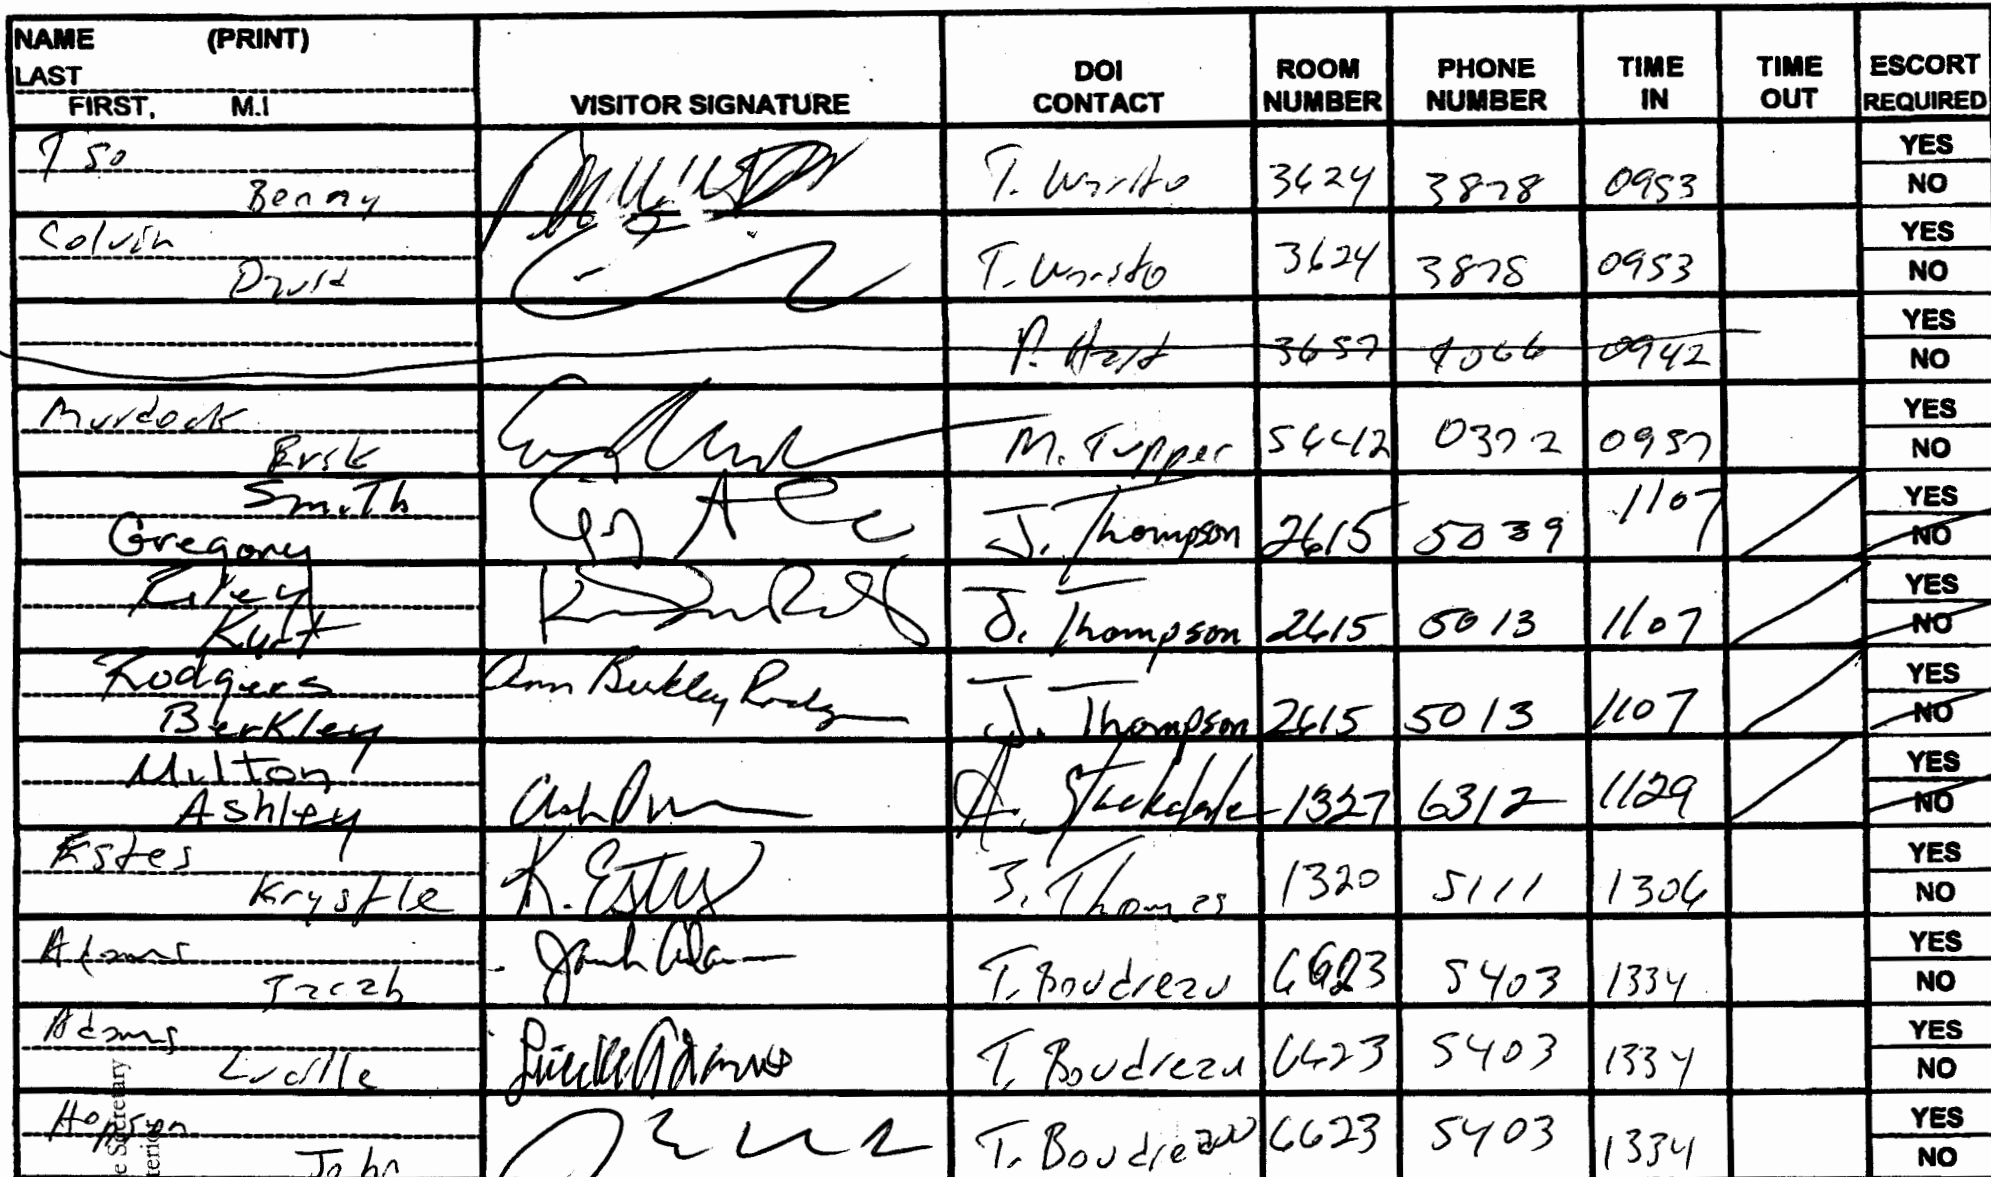 NAME (PRINT)
LAST
FIRST, M.I
VISITOR SIGNATURE
DOI CONTACT
ROOM NUMBER
PHONE NUMBER
TIME IN
TIME OUT
ESCORT REQUIRED
Tso
Benny
3624 3878 0953 YES NO
Colvin
David
3624 3878 0953 YES NO
P. Hart 3657 4066 0942 YES NO
Murdock
Erik
M. Tupper 0372 0957 YES NO
Smith
Gregory
J. Thompson 2615 5039 1107 YES NO
Riley
Kurt
J. Thompson 2615 5013 1107 YES NO
Rodgers
Berkley
Ann Berkley Rodg
J. Thompson 2615 5013 1107 YES NO
Milton
Ashley
A. Stockdale 1327 6312 1129 YES NO
Estes
Krystle
K. Estes
J. Thomas 1320 5111 1306 YES NO
Adams
Jarah
T. Boudreau 6623 5403 1334 YES NO
Adams
Lucille
Lucille Adams
T. Boudreau 6623 5403 1334 YES NO
Hopson
John
T. Boudreau 6623 5403 1334 YES NO
e Secretary
terior